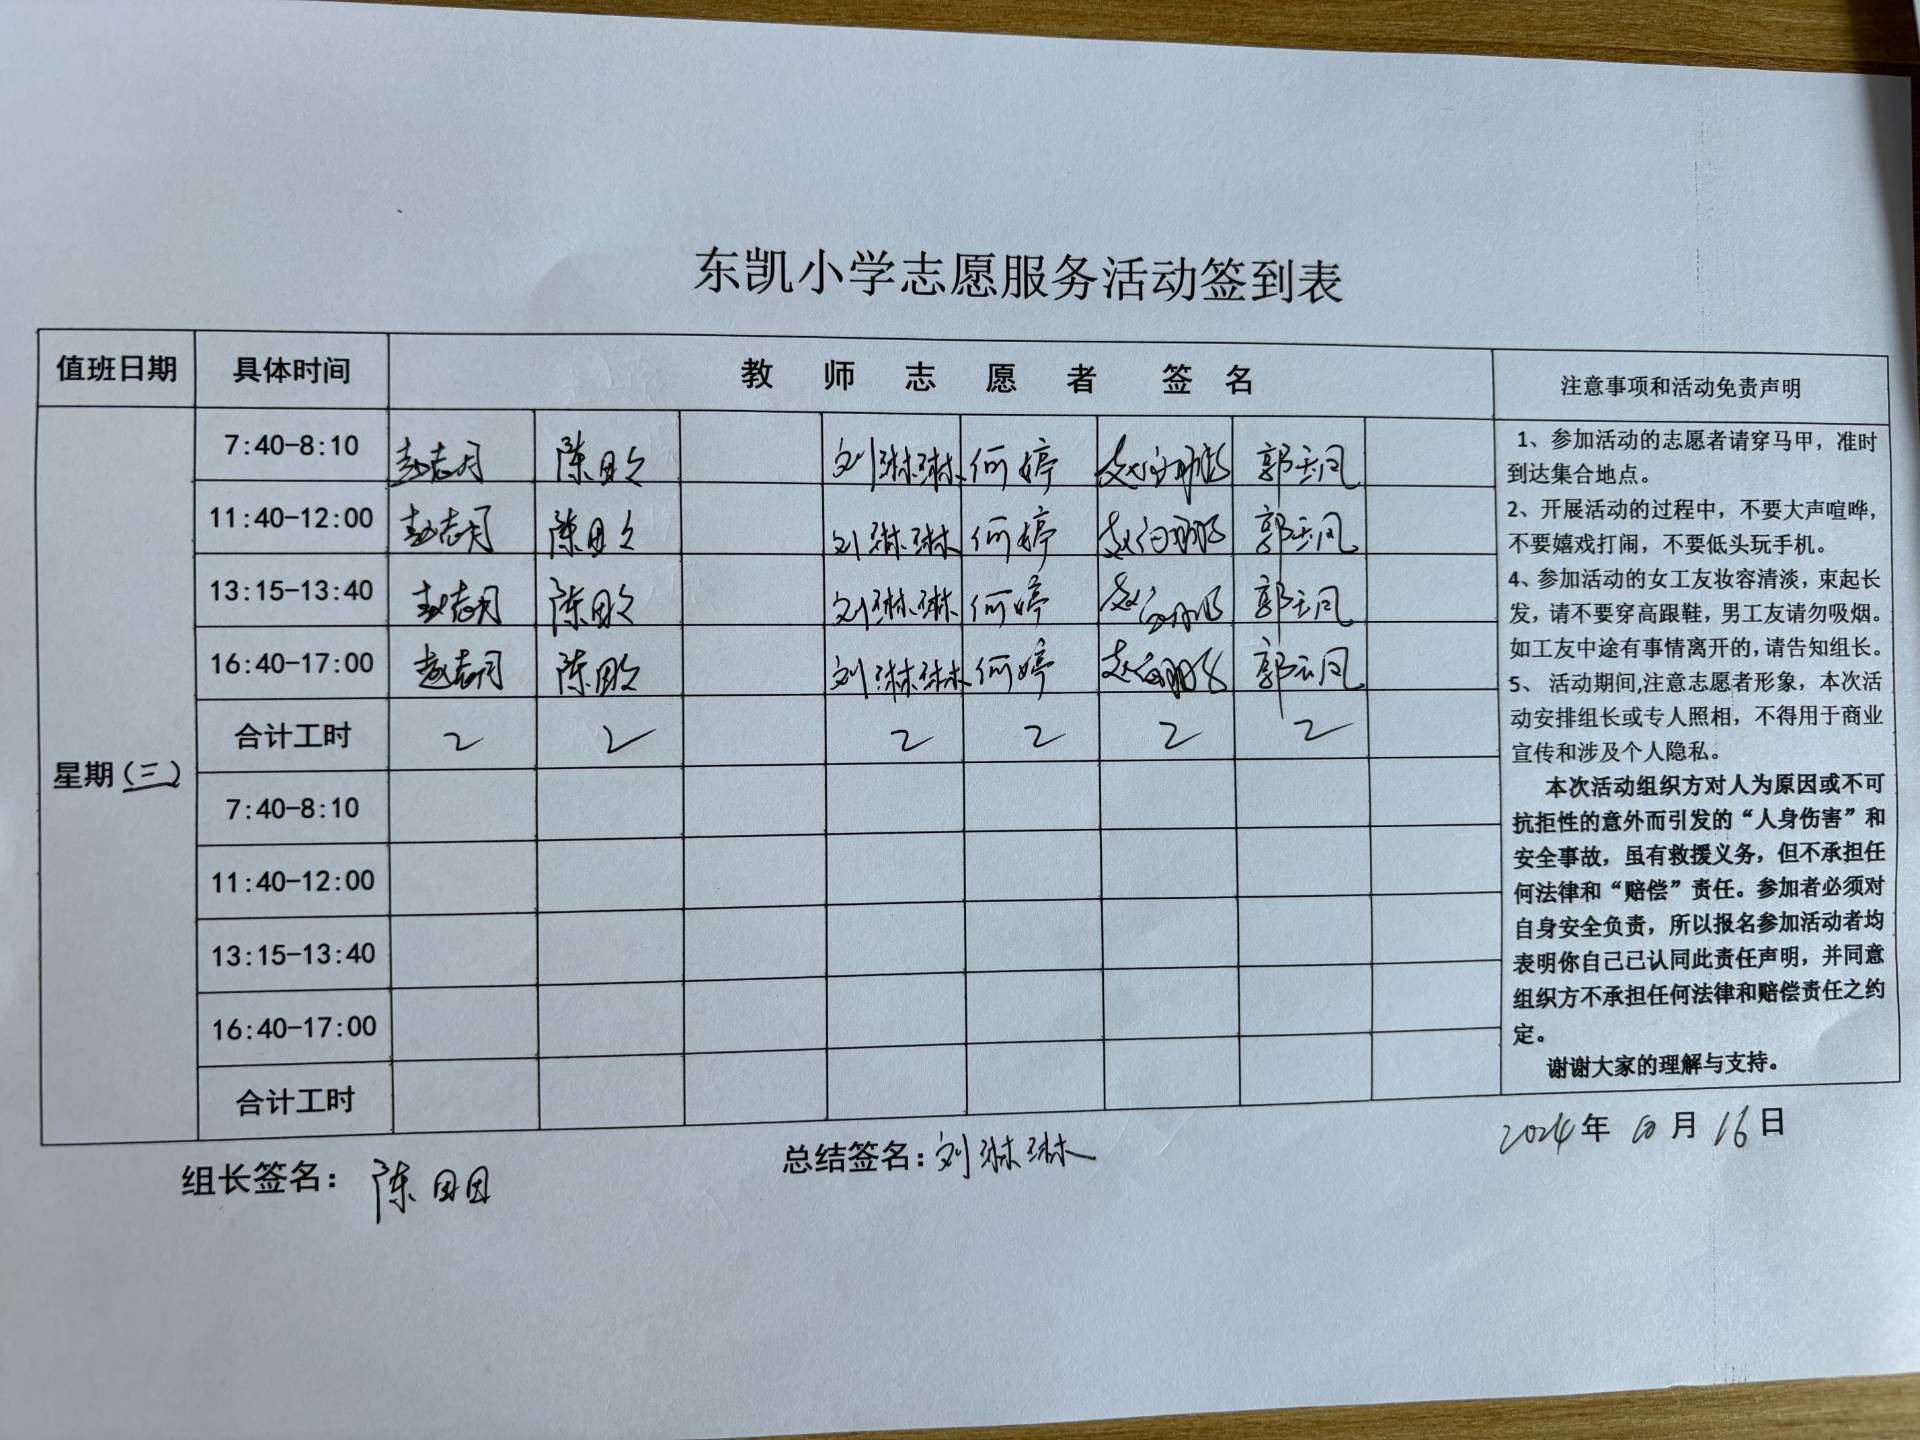 东凯小学志愿服务活动签到表
值班日期 具体时间 教师志愿者签名 注意事项和活动免责声明
星期(三)
7:40-8:10 赵志月 陈 刘琳琳 何婷 赵 郭云凤
11:40-12:00 赵志月 陈 刘琳琳 何婷 赵 郭云凤
13:15-13:40 赵志月 陈 刘琳琳 何婷 赵 郭云凤
16:40-17:00 赵志月 陈 刘琳琳 何婷 赵 郭云凤
合计工时 2 2 2 2 2 2
7:40-8:10
11:40-12:00
13:15-13:40
16:40-17:00
合计工时
1、参加活动的志愿者请穿马甲，准时
到达集合地点。
2、开展活动的过程中，不要大声喧哗，
不要嬉戏打闹，不要低头玩手机。
4、参加活动的女工友妆容清淡，束起长
发，请不要穿高跟鞋，男工友请勿吸烟。
如工友中途有事情离开的，请告知组长。
5、 活动期间,注意志愿者形象，本次活
动安排组长或专人照相，不得用于商业
宣传和涉及个人隐私。
本次活动组织方对人为原因或不可
抗拒性的意外而引发的“人身伤害”和
安全事故，虽有救援义务，但不承担任
何法律和“赔偿”责任。参加者必须对
自身安全负责，所以报名参加活动者均
表明你自己已认同此责任声明，并同意
组织方不承担任何法律和赔偿责任之约
定。
谢谢大家的理解与支持。
组长签名：陈 总结签名：刘琳琳 2024年10月16日